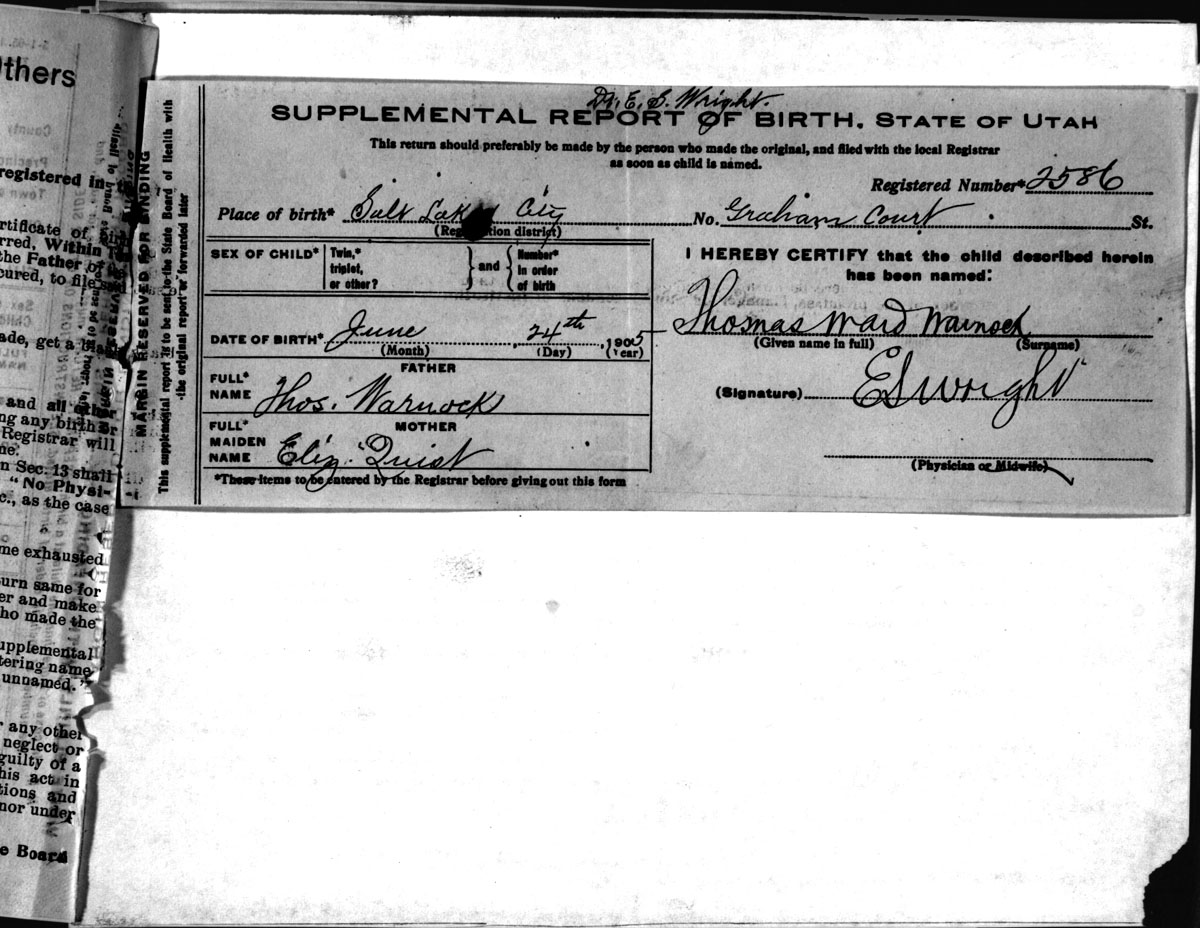 Others
registered in
rtificate of
rred, Within
the Father of
cured, to file
ade, get a
and all other
ng any birth or
Registrar will
me.
n Sec. 13 shall
"No Physi-
c., as the case
me exhausted
urn same for
er and make
ho made the
upplemental
tering name
unnamed."
r any other
neglect or
guilty of a
his act in
tions and
nor under
e Board
MARGIN RESERVED FOR BINDING
This supplemental report is to be sent to the State Board of Health with
the original report or forwarded later
Dr. E. S. Wright.
SUPPLEMENTAL REPORT OF BIRTH, STATE OF UTAH
This return should preferably be made by the person who made the original, and filed with the local Registrar
as soon as child is named.
Registered Number* 2586
Place of birth* Salt Lake City No. Graham Court St.
(Registration district)
SEX OF CHILD* Twin, triplet, or other? and Number* in order of birth
I HEREBY CERTIFY that the child described herein
has been named:
Thomas Ward Warnock
(Given name in full) (Surname)
DATE OF BIRTH* June 24th, 1905
(Month) (Day) (Year)
FATHER
FULL* NAME Thos. Warnock
(Signature) E S Wright
MOTHER
FULL* MAIDEN NAME Eliz. Quist
(Physician or Midwife)
*These items to be entered by the Registrar before giving out this form